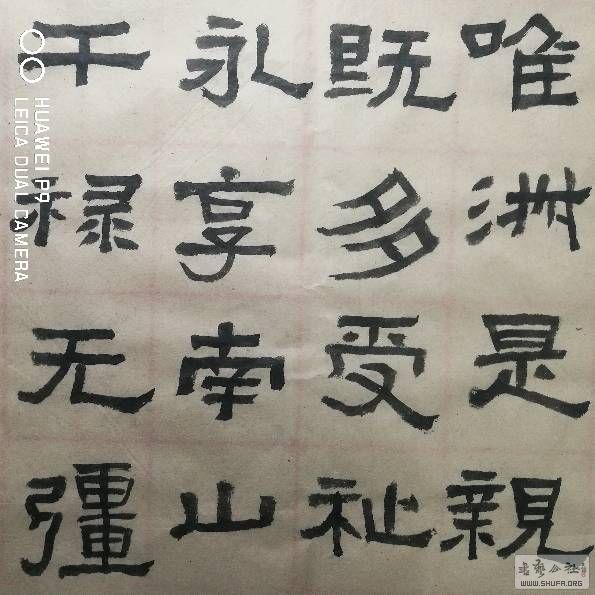 唯淑是親
既多受祉
永享南山
干禄无彊
HUAWEI P9
LEICA DUAL CAMERA
WWW.SHUFA.ORG